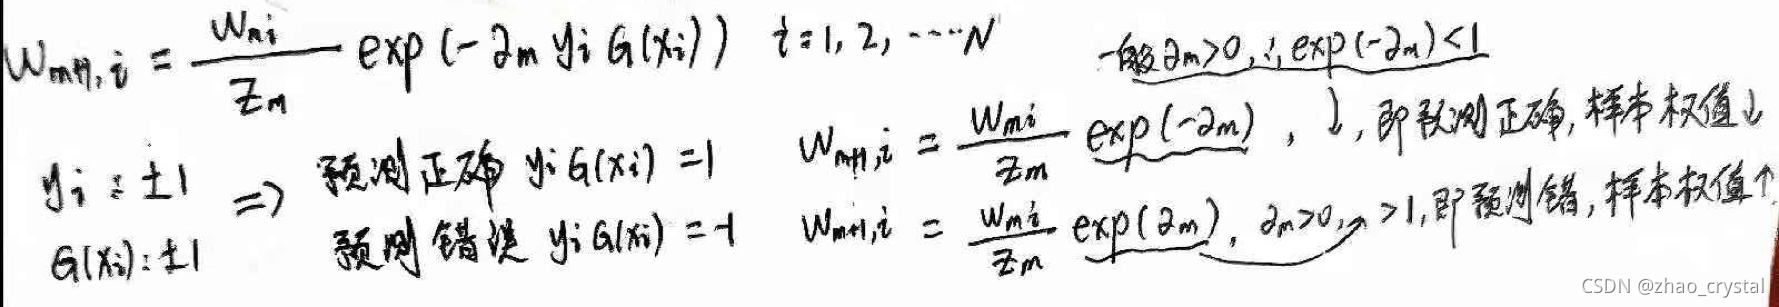 W_{m+1,i} = \frac{W_{mi}}{Z_m} exp(-∂m yi G(xi)) i=1,2,····N
一般∂m>0,∴exp(-∂m)<1
yi:±1
G(xi):±1
=> 预测正确 yiG(xi)=1 W_{m+1,i} = \frac{W_{mi}}{Z_m} exp(-∂m), ↓,即预测正确,样本权值↓
预测错误 yiG(xi)=-1 W_{m+1,i} = \frac{W_{mi}}{Z_m} exp(∂m), ∂m>0, >1,即预测错,样本权值↑
CSDN @zhao_crystal